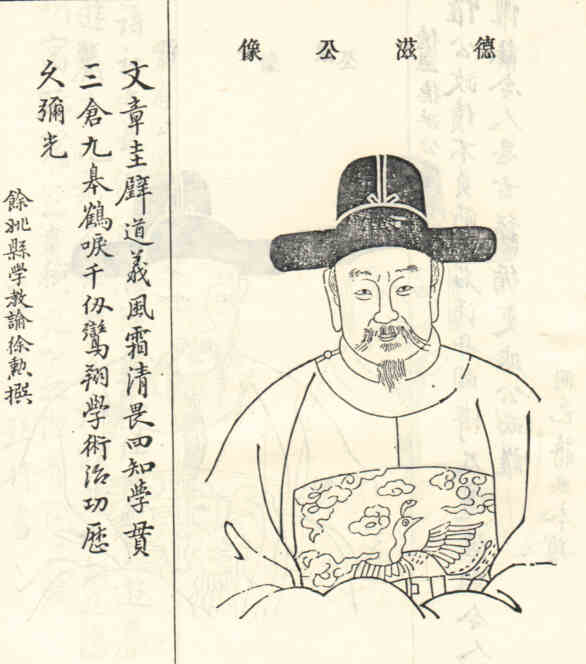 德滋公像
文章圭璧道義風霜清畏四知學貫
三倉九皋鶴唳千仞鸞翔學術治功歷
久彌光
餘姚縣學教諭徐勲撰